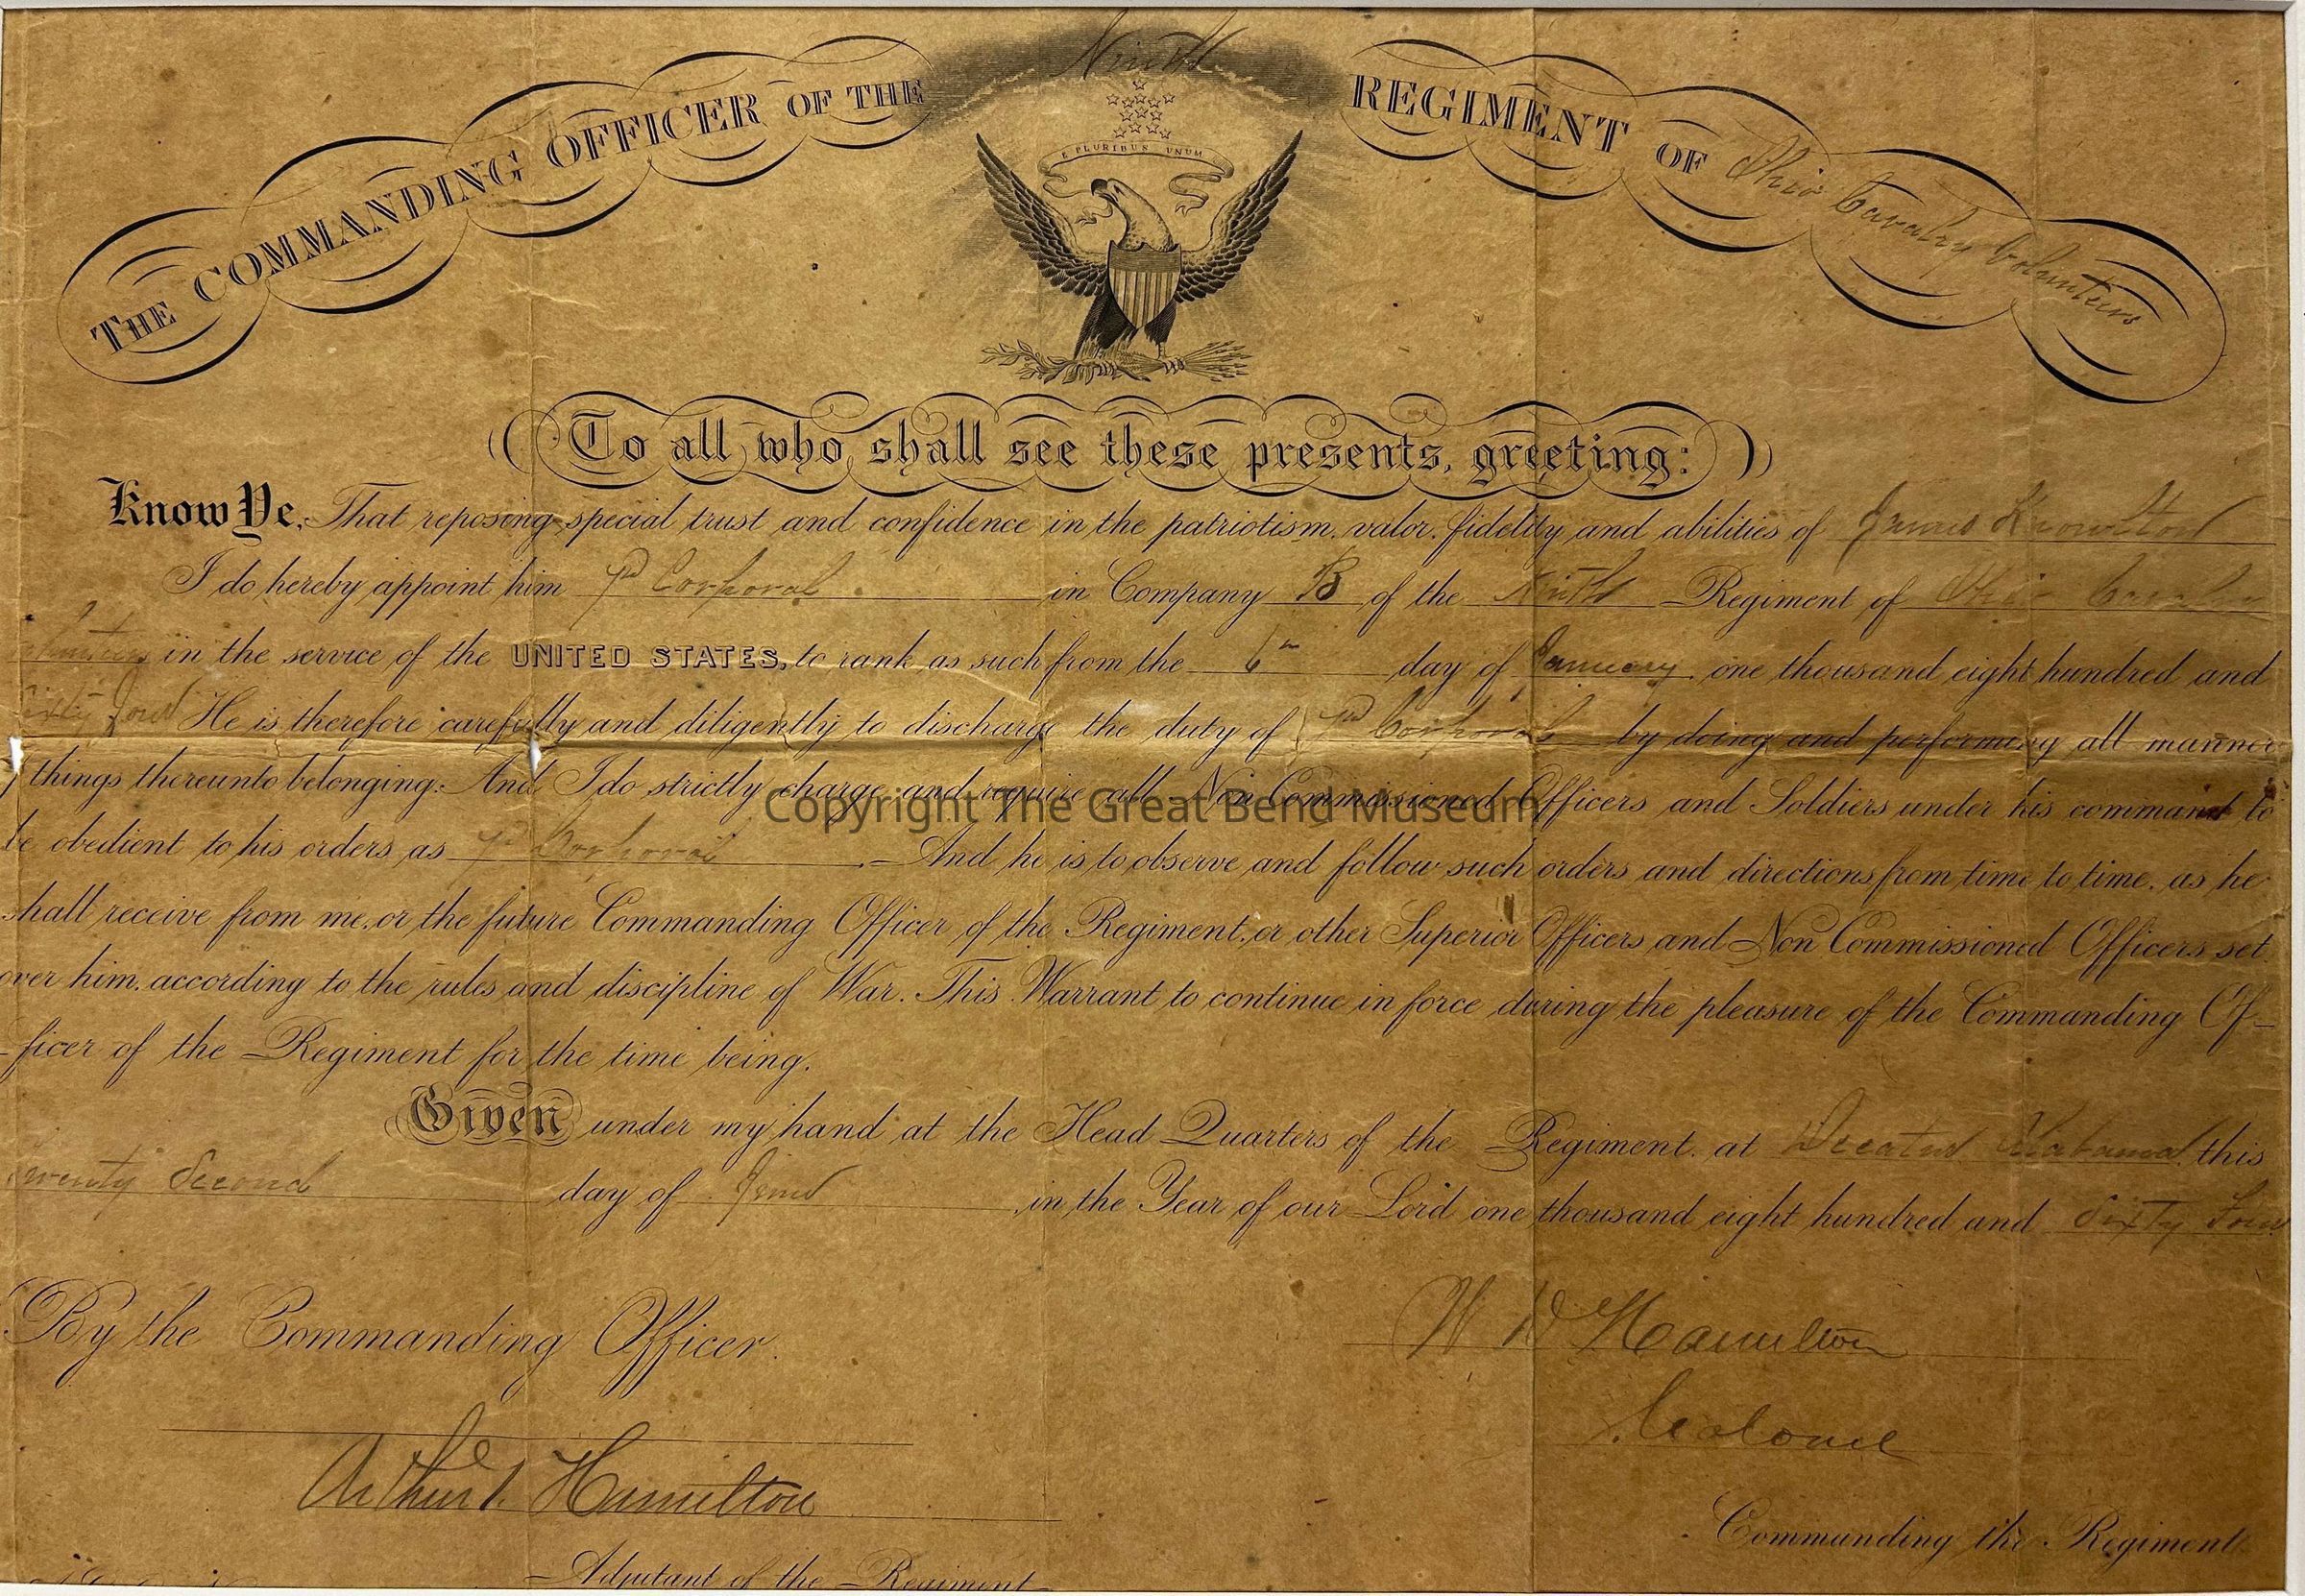 THE COMMANDING OFFICER OF THE Ninth REGIMENT OF Ohio Cavalry Volunteers
E PLURIBUS UNUM
To all who shall see these presents, greeting:
Know Ye, That reposing special trust and confidence in the patriotism, valor, fidelity and abilities of James Knowlton
I do hereby appoint him Corporal in Company B of the Ninth Regiment of Ohio Cavalry
in the service of the UNITED STATES, to rank as such from the 6th day of January one thousand eight hundred and
sixty four He is therefore carefully and diligently to discharge the duty of Corporal by doing and performing all manner
things thereunto belonging. And I do strictly charge and require all Non Commissioned Officers and Soldiers under his command to
be obedient to his orders as Corporal And he is to observe and follow such orders and directions from time to time, as he
shall receive from me, or the future Commanding Officer of the Regiment, or other Superior Officers and Non Commissioned Officers set
over him, according to the rules and discipline of War. This Warrant to continue in force during the pleasure of the Commanding Of-
-ficer of the Regiment for the time being.
Given under my hand at the Head Quarters of the Regiment, at Decatur Alabama this
Twenty Second day of June in the Year of our Lord one thousand eight hundred and Sixty Four
By the Commanding Officer.
W D Hamilton
Colonel
Commanding the Regiment
Arthur T. Hamilton
Adjutant of the Regiment
Copyright The Great Bend Museum